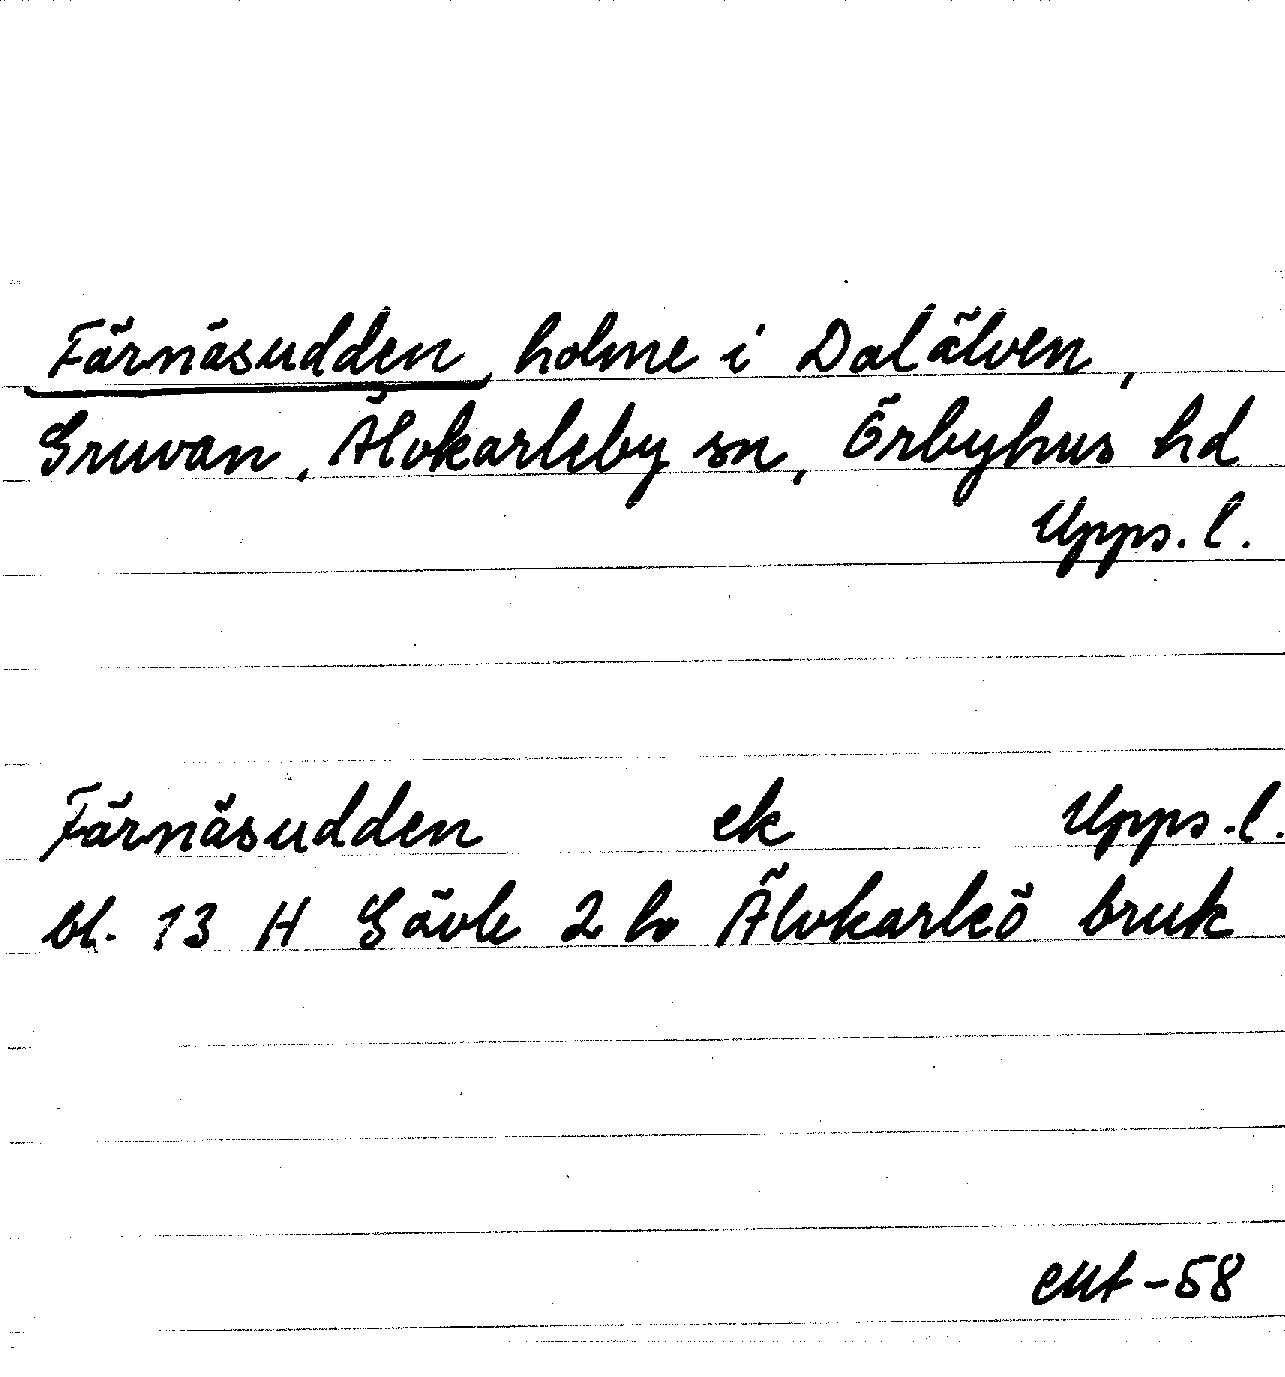 Färnäsudden, holme i Dalälven,
Gruvan, Älvkarleby sn, Örbyhus hd
Upps. l.
Färnäsudden ek Upps. l.
bl. 13 H Gävle 2 b Älvkarleö bruk
-58